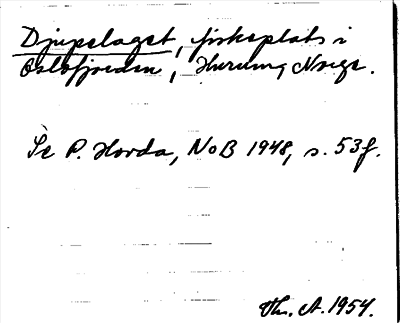 Djupelaget, fiskeplats i
Oslofjorden, Hurum, Norge.
Se P. Hovda, NoB 1948, s. 53f.
Vhr. A. 1954.